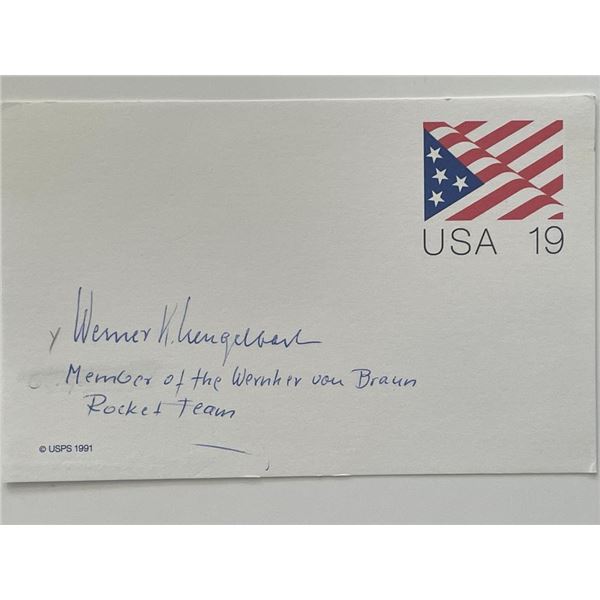 USA 19
Werner K. Gengelbach
Member of the Wernher von Braun
Rocket Team
© USPS 1991